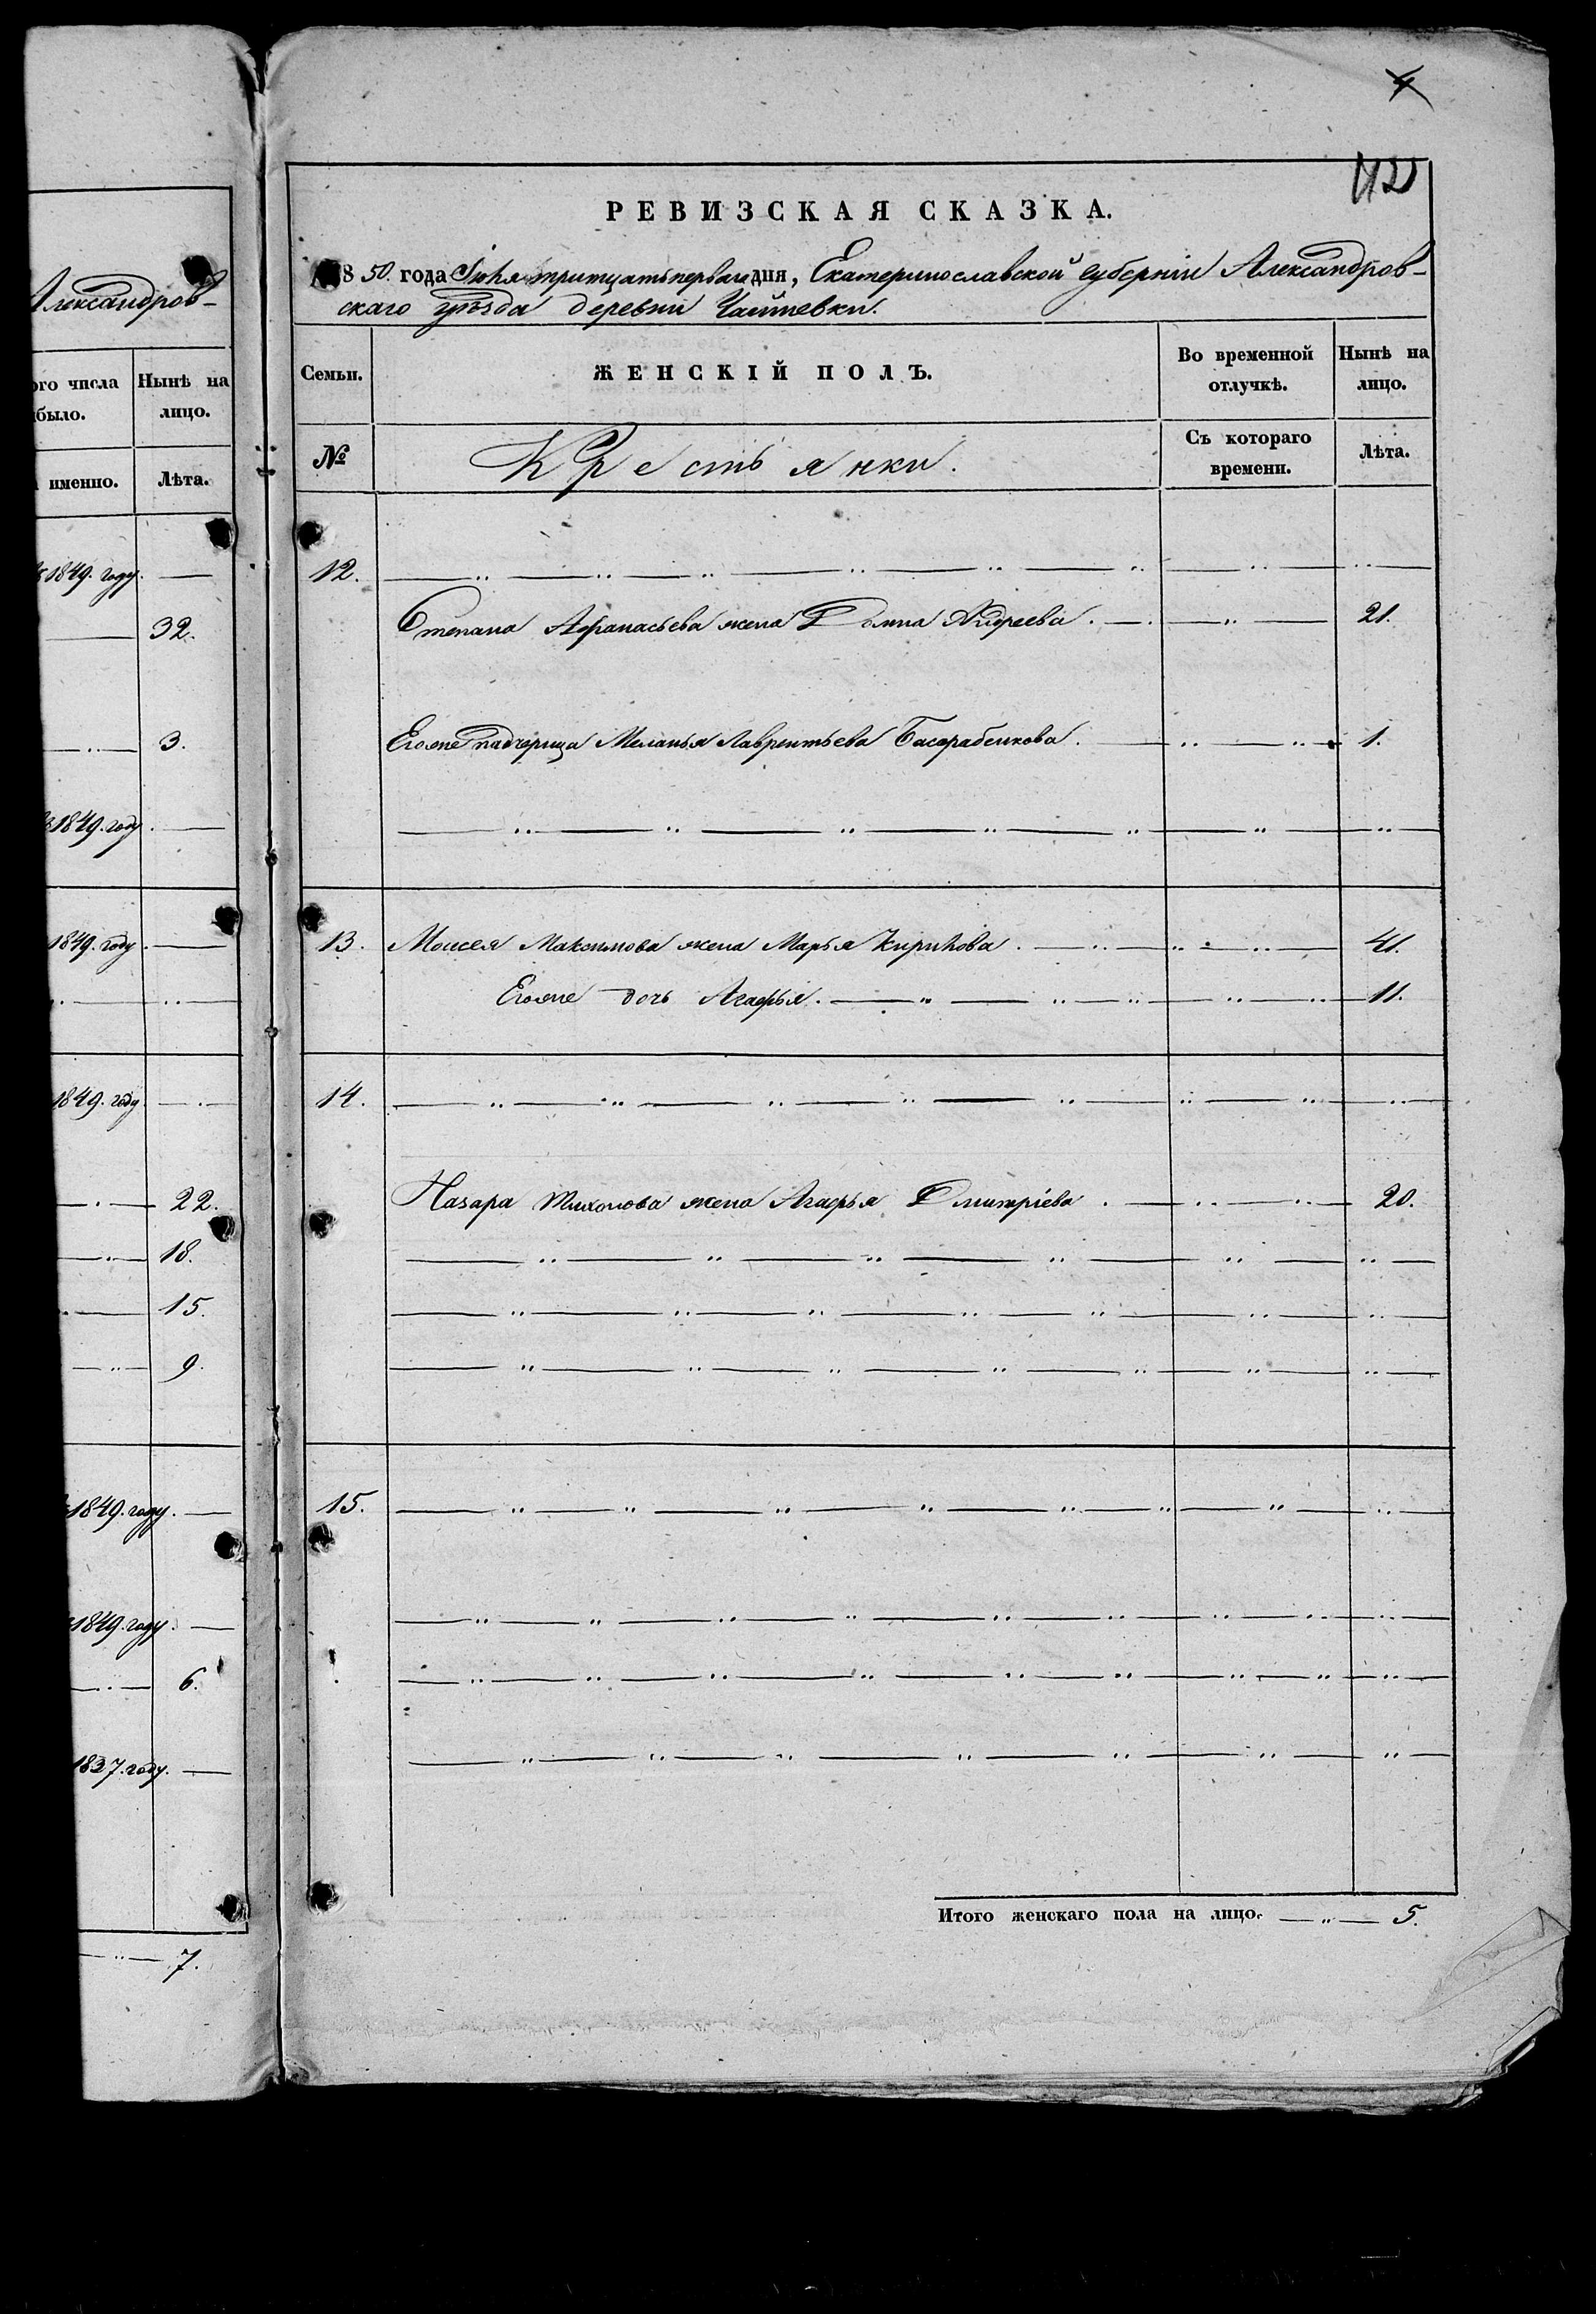 4
Александров-
ого числа Нынѣ на
было. лицо.
именно. Лѣта.
1849. году. —
32.
3.
1849. году. —
1849. году. —
1849. году. —
22.
18.
15.
9.
1849. году. —
1849. году. —
6.
1837. году. —
7.
РЕВИЗСКАЯ СКАЗКА.
1850. года Іюня тритцать перваго дня, Екатеринославской губерніи Александров-
скаго уѣзда деревни
Семьи. ЖЕНСКІЙ ПОЛЪ. Во временной отлучкѣ. Нынѣ на лицо.
№ Крестьянки. Съ котораго времени. Лѣта.
12.
Степана Афанасьева жена Домна Андреева. 21.
Егоже падчерица Меланья Лаврентьева Басарабенкова. 1.
13. Моисея Максимова жена Марья Кирикова. 41.
Егоже дочь Агафья. 11.
14.
Назара Тихонова жена Агафья Дмитріева. 20.
15.
Итого женскаго пола на лицо. 5.